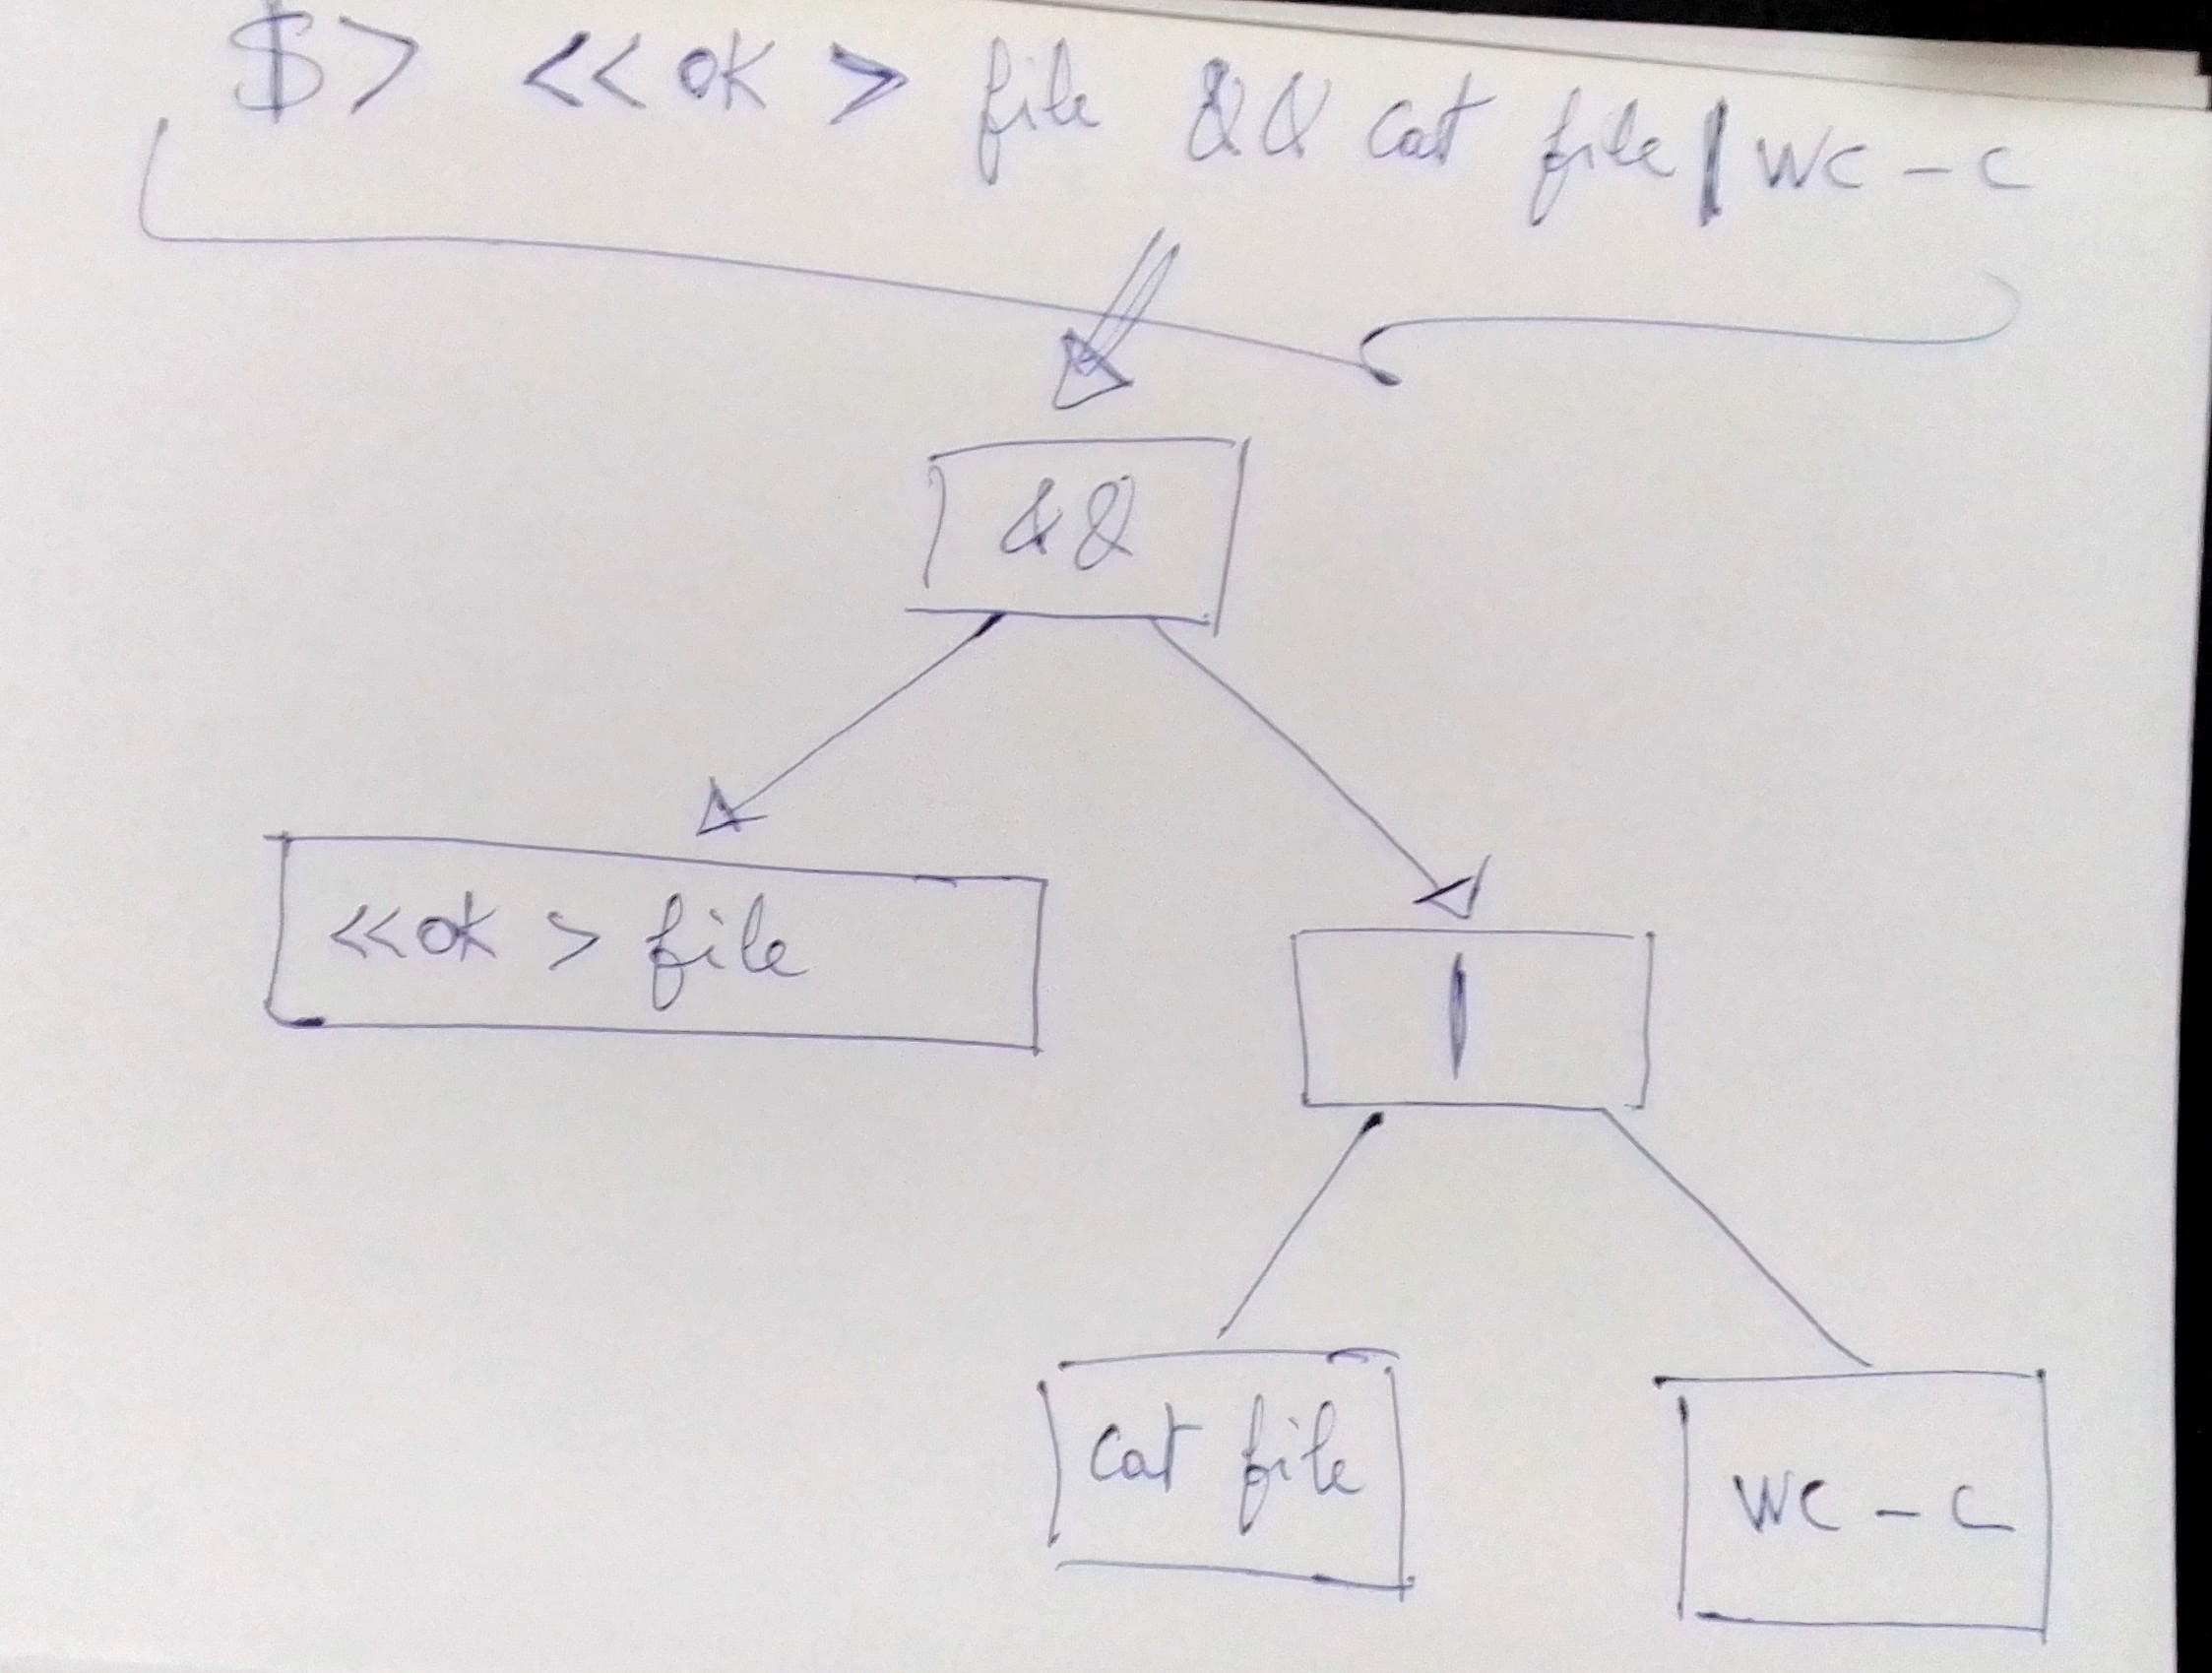 $> <<ok > file && cat file | wc -c
&&
<<ok > file
|
cat file
wc -c